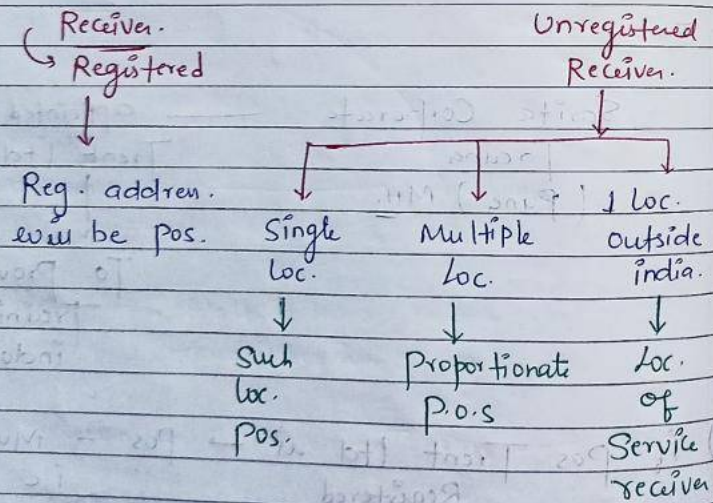 Receiver.
Registered
Reg. addren.
will be pos.
Unregistered
Receiver.
Single
Loc.
Such
loc.
Pos.
Multiple
Loc.
Proportionate
P.O.S
1 Loc.
outside
india.
Loc.
of
Service
receiver